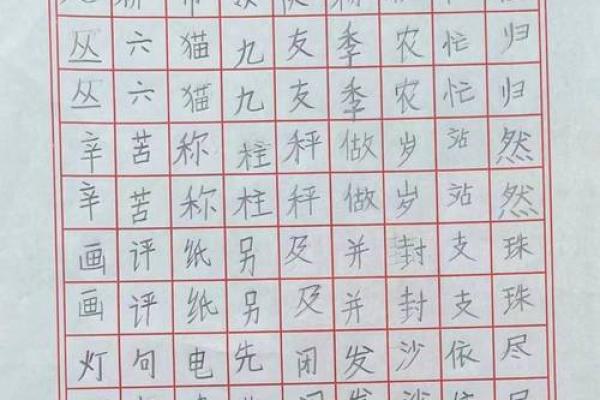 丛六猫九友季农忙归
丛六猫九友季农忙归
辛苦称柱秤做岁站然
辛苦称柱秤做岁站然
画评纸另及并封支珠
画评纸另及并封支珠
灯句电先闭发沙依尽